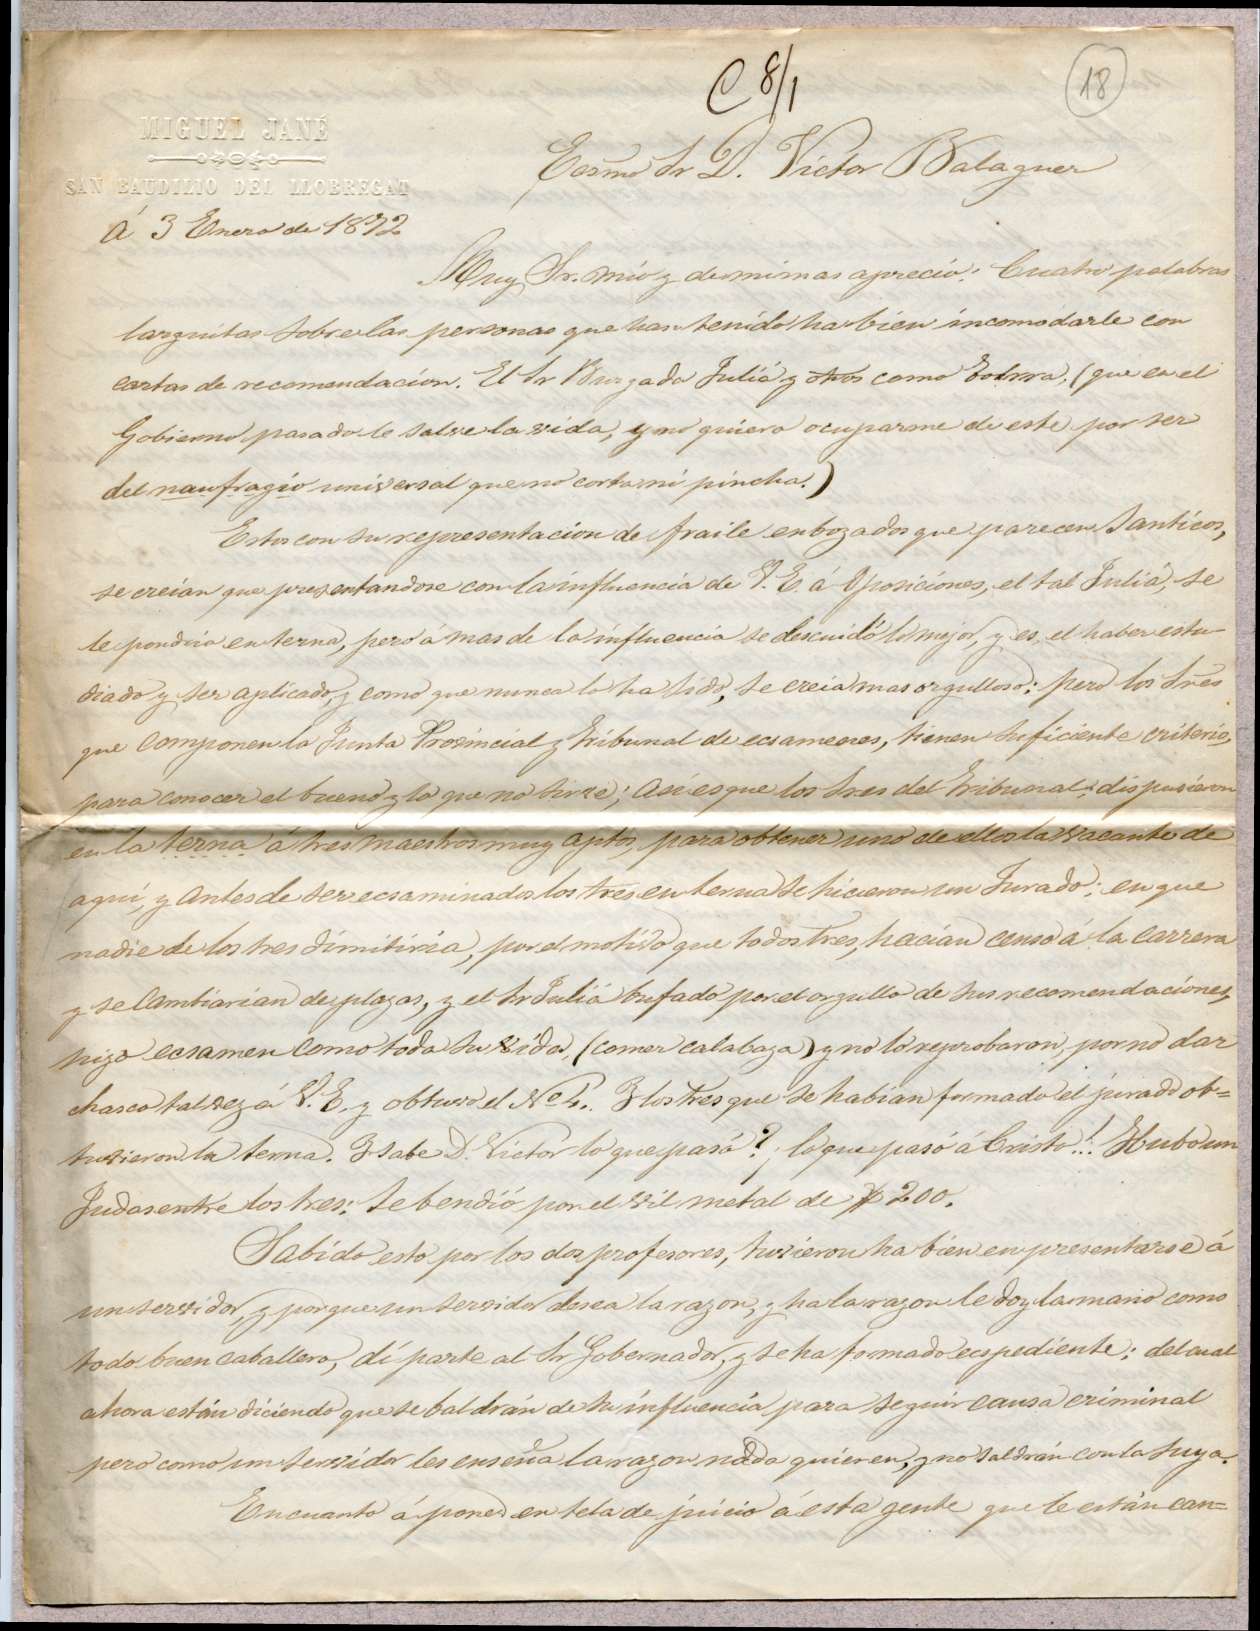 C 8/1
18
MIGUEL JANÉ
SAN BAUDILIO DEL LLOBREGAT
Ecsmo Sr D. Victor Balaguer
á 3 Enero de 1872
Muy Sr. mio y de mi mas aprecio: Cuatro palabras
larguitas sobre las personas que han tenido ha bien incomodarle con
cartas de recomendacion. El Sr Burgada Juliá y otros como (que en el
Gobierno pasado le salve la vida, y no quiero ocuparme de este por ser
del naufragio universal que no corta ni pincha.)
Estos con su representacion de fraile enbozados que parecen Santicos,
se creian que presentandose con la influencia de V.E. á Oposiciones, el tal Juliá, se
le pondria en terna, pero á mas de la influencia se descuidó lo mejor, y es, el haber estu-
diado y ser aplicado, y como que nunca lo ha sido, se creia mas orgulloso: pero los Sres
que componen la Junta Provincial y tribunal de ecsamenes, tienen suficiente criterio,
para conocer el bueno y lo que no sirve; asi es que los tres del tribunal: dispusieron
en la terna á tres maestros muy aptos, para obtener uno de ellos la vacante de
aquí, y antes de ser ecsaminados los tres en terna se hicieron un Jurado: en que
nadie de los tres dimitiria, por el motivo que todos tres, hacian censo á la carrera
y se cambiarian de plazas, y el Sr Juliá bufado por el orgullo de sus recomendaciones,
hizo ecsamen como toda su vida, (comer calabaza) y no lo reprobaron, por no dar
chasco tal vez á V.E. y obtuvo el Nº 4. Y los tres que se habian formado el jurado ob=
tuvieron la terna. Y sabe D. Victor lo que pasó?; lo que pasó á Cristo!.. Hubo un
Judas entre los tres: se bendió por el vil metal de $ 200.
Sabido esto por los dos profesores, tuvieron ha bien en presentarse á
un servidor, y porque un servidor desea la razon, y ha la razon le doy la mano como
todo buen caballero, dí parte al Sr Gobernador, y se ha formado ecspediente: del cual
ahora están diciendo que se baldrán de su influencia para seguir causa criminal
pero como un servidor les enseña la razon nada quieren, y no saldrán con la suya.
En cuanto á poner en tela de juicio á esta gente que le están can=